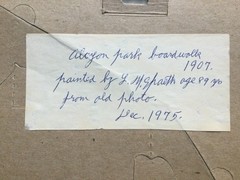 Alcyon park boardwalk
1907.
painted by L. M. Spaeth age 89 yrs
from old photo.
Dec. 1975.